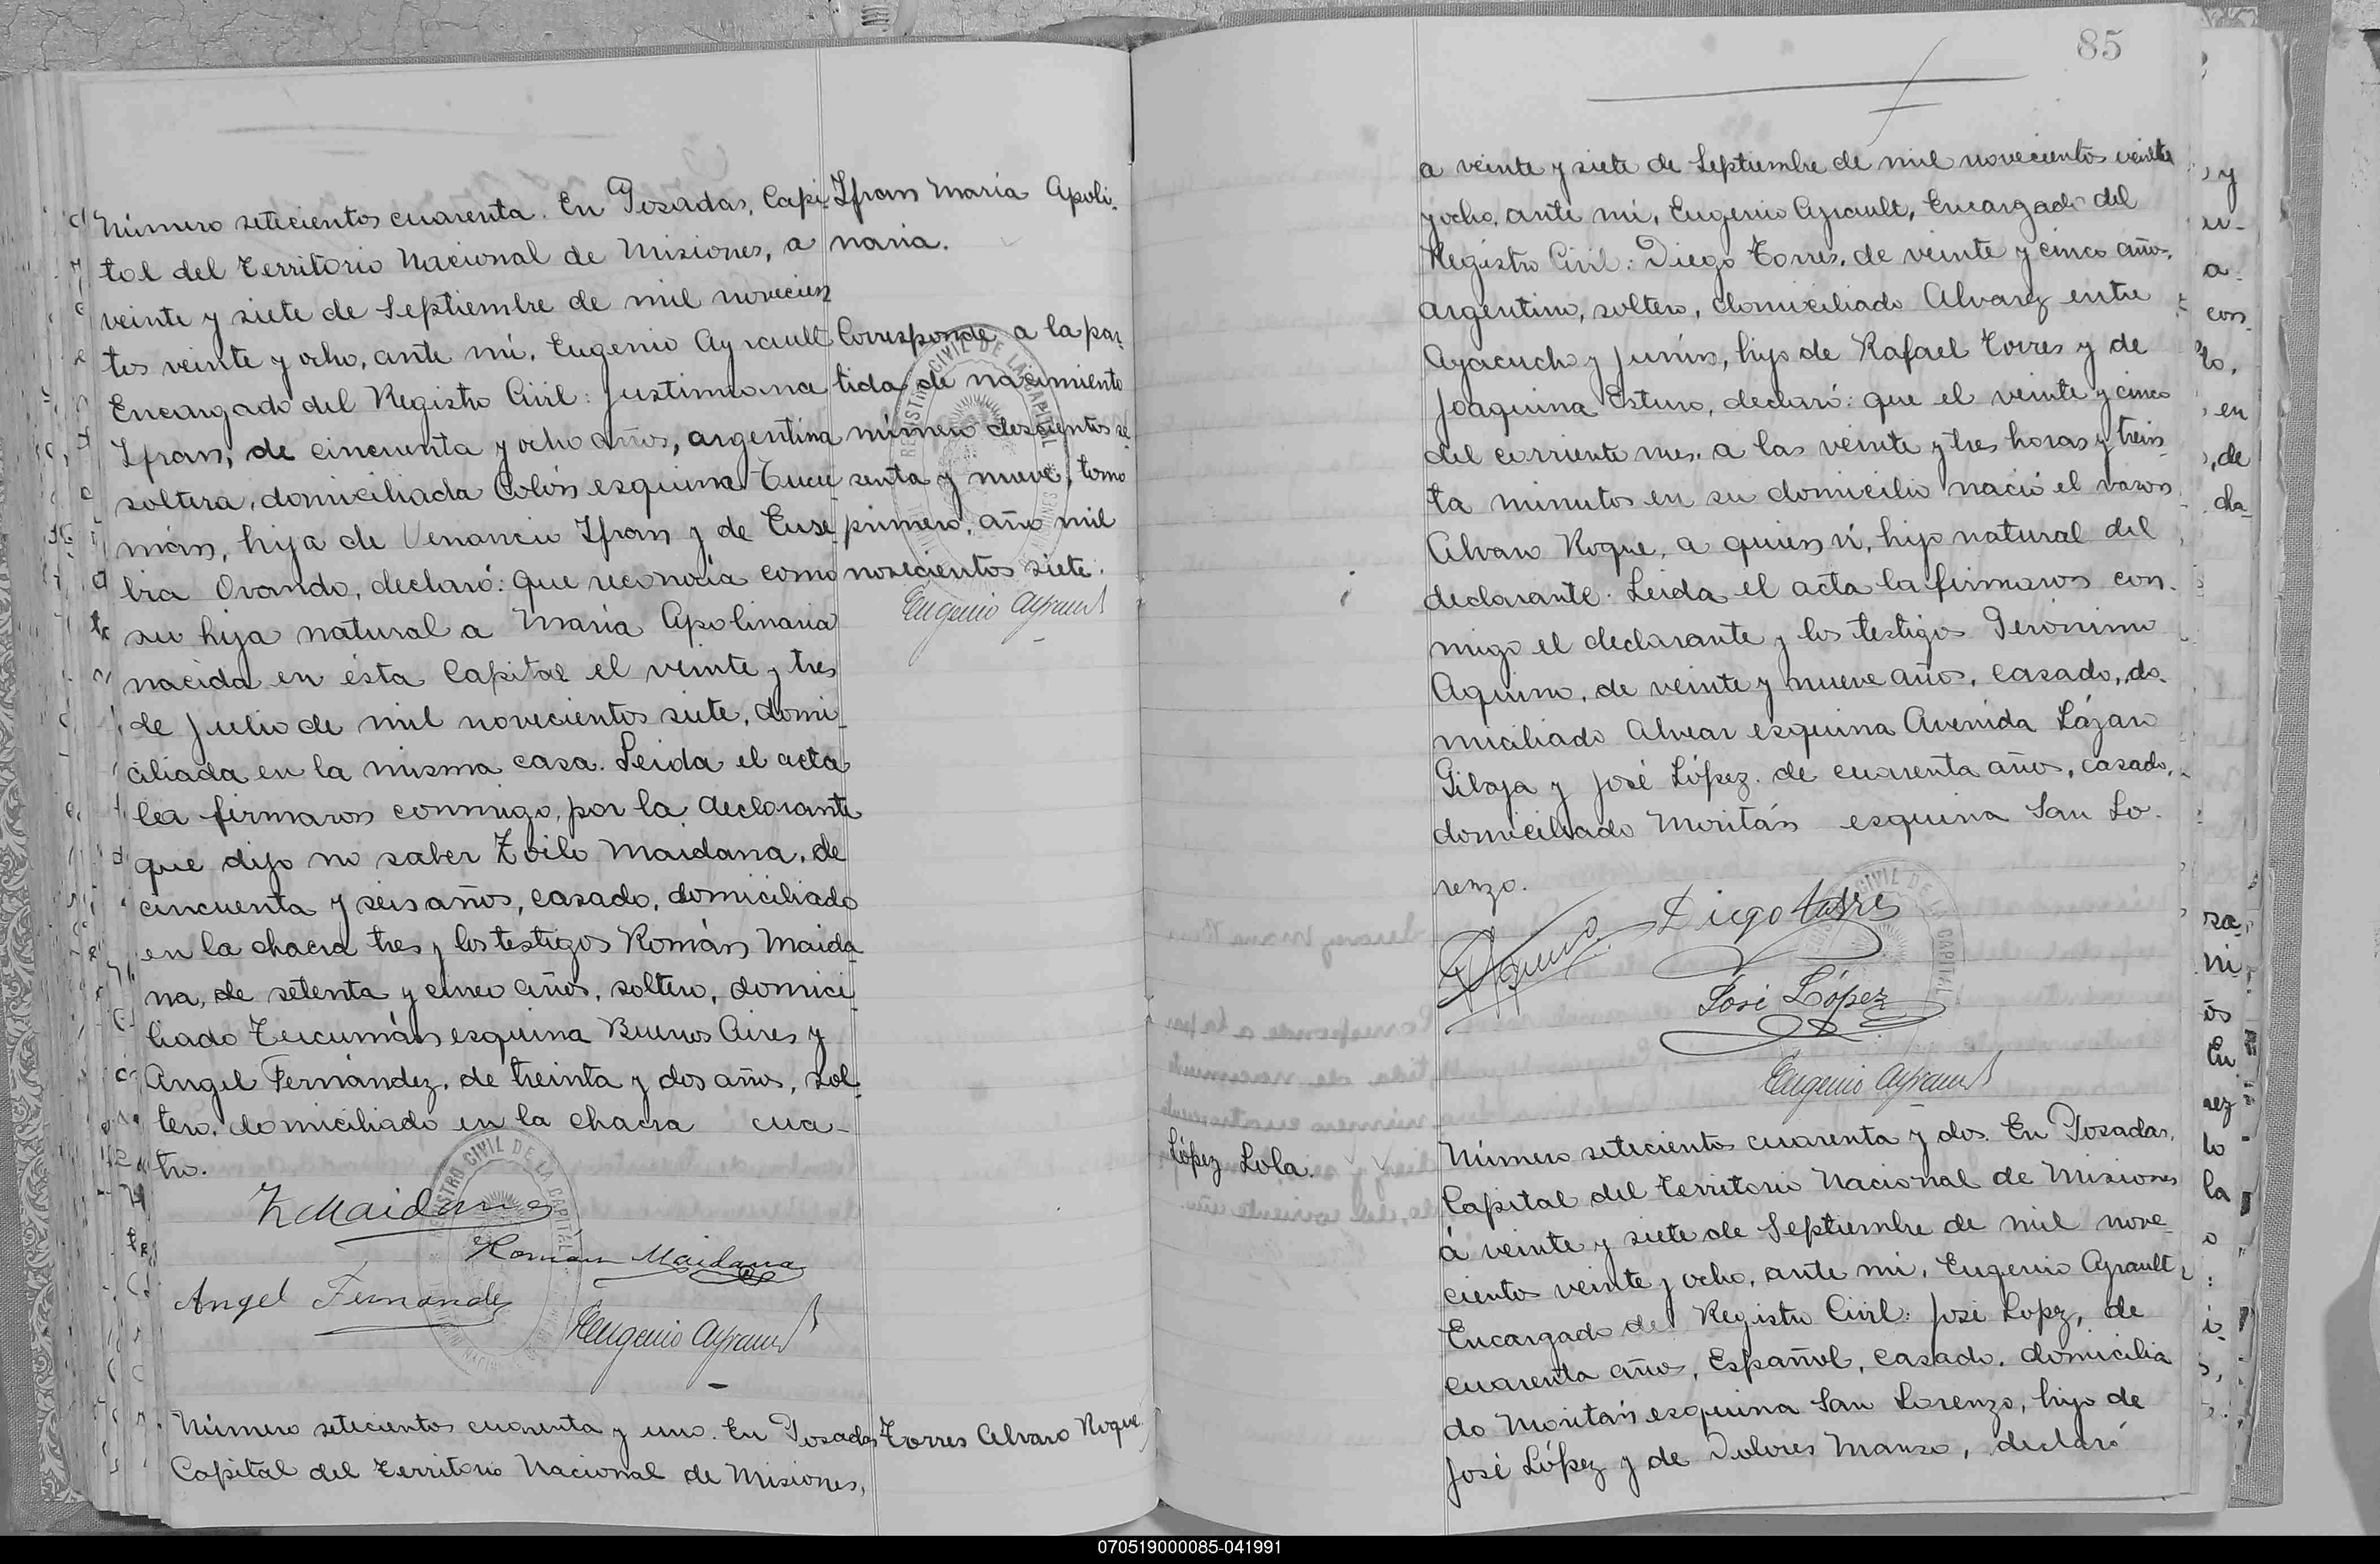 Número setecientos cuarenta. En Posadas, Capi-
tal del Territorio Nacional de Misiones, a
veinte y siete de Septiembre de mil novecien
tos veinte y ocho, ante mí, Eugenio Ayrault
Encargado del Registro Civil: Justimiana
Ifran, de cincuenta y ocho años, argentina
soltera, domiciliada Colón esquina Tucu
mán, hija de Venancio Ifran y de Euse
bia Ovando, declaró: que reconocía como
su hija natural a María Apolinaria
nacida en ésta Capital el veinte y tres
de Julio de mil novecientos siete, domi-
ciliada en la misma casa. Leída el acta
la firmaron conmigo, por la declarante
que dijo no saber Zoilo Maidana, de
cincuenta y seis años, casado, domiciliado
en la chacra tres y los testigos Román Maida
na, de setenta y cinco años, soltero, domici
liado Tucumán esquina Buenos Aires y
Angel Fernández, de treinta y dos años, sol
tero, domiciliado en la chacra cua-
tro.
Z Maidana
Roman Maidana
Angel Fernandez
Eugenio Ayrault
Ifran María Apoli-
naria.
Corresponde a la par-
tida de nacimiento
número doscientos se
senta y nueve, tomo
primero, año mil
novecientos siete.
Eugenio Ayrault
REGISTRO CIVIL DE LA CAPITAL
Número setecientos cuarenta y uno. En Posadas
Capital del Territorio Nacional de Misiones,
Torres Alvaro Roque
85
a veinte y siete de Septiembre de mil novecientos veinte
y ocho, ante mí, Eugenio Ayrault, Encargado del
Registro Civil: Diego Torres, de veinte y cinco años,
argentino, soltero, domiciliado Alvarez entre
Ayacucho y Junín, hijo de Rafael Torres y de
Joaquina Esturo, declaró: que el veinte y cinco
del corriente mes, a las veinte y tres horas y trein
ta minutos en su domicilio nació el varon
Alvaro Roque, a quien ví, hijo natural del
declarante. Leída el acta la firmaron con-
migo el declarante y los testigos Gerónimo
Aquino, de veinte y nueve años, casado, do-
miciliado Alvear esquina Avenida Lázaro
Gibaja y José López, de cuarenta años, casado,
domiciliado Moritán esquina San Lo-
renzo.
Diego Torres
G Aquino
José López
Eugenio Ayrault
López Lola.
Número setecientos cuarenta y dos. En Posadas,
Capital del Territorio Nacional de Misiones
á veinte y siete de Septiembre de mil nove-
cientos veinte y ocho, ante mí, Eugenio Ayrault,
Encargado del Registro Civil: José Lopez, de
cuarenta años, Español, casado, domicilia
do Moritán esquina San Lorenzo, hijo de
José López y de Dolores Manso, declaró
070519000085-041991